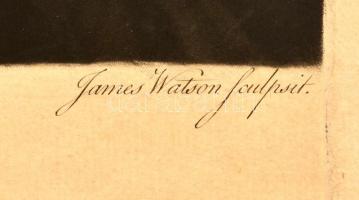 James Watson Sculpsit.